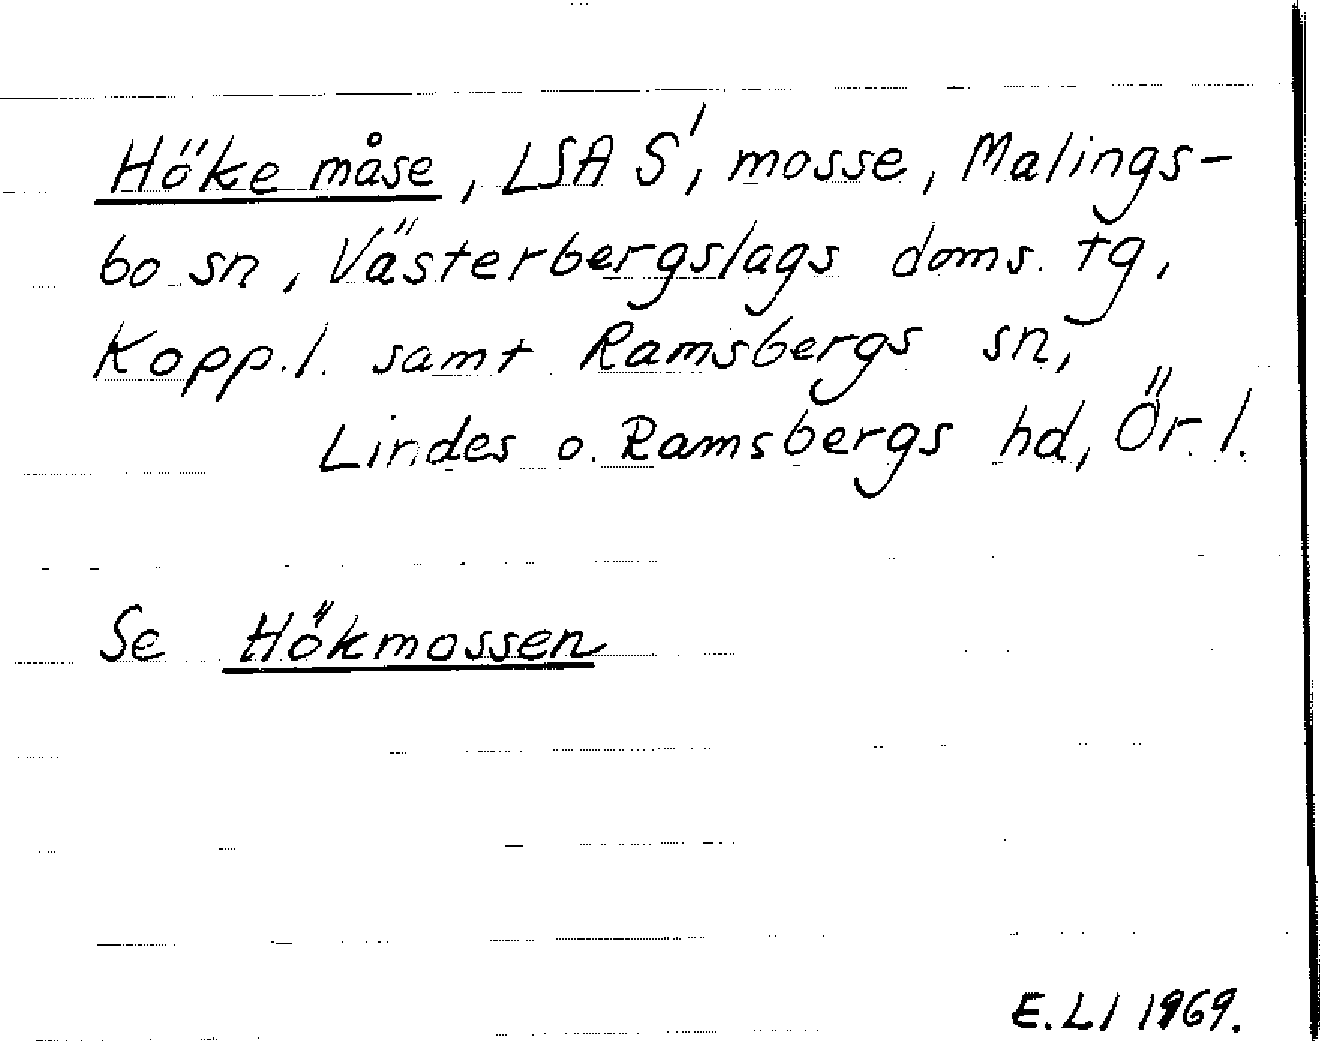 Höke måse, LSA S', mosse, Malings-
bo sn, Västerbergslags doms. tg,
Kopp.l. samt Ramsbergs sn,
Lindes o. Ramsbergs hd, Ör. l.
Se Hökmossen
E.Ll 1969.